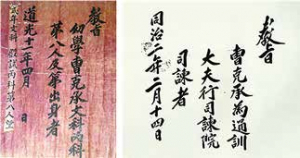 敎旨
幼學曹克承文科丙科
第八人及第出身者
道光十一年四月 日
敎旨
曹克承爲通訓
大夫行司諫院
司諫者
同治二年二月十四日